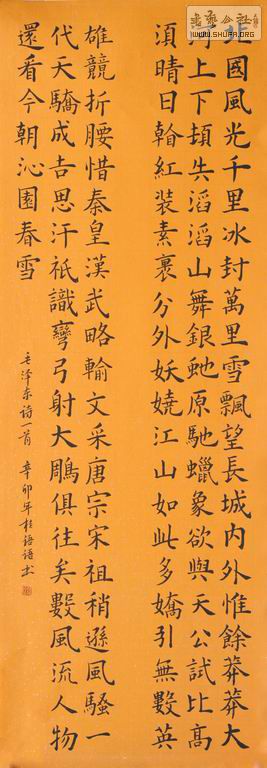 北國風光千里冰封萬里雪飄望長城內外惟餘莽莽大
河上下頓失滔滔山舞銀虵原馳蠟象欲與天公試比高
湏晴日翰紅装素裹分外妖嬈江山如此多嬌引無數英
雄競折腰惜秦皇漢武略輸文采唐宗宋祖稍遜風騷一
代天驕成吉思汗祇識彎弓射大鵰俱往矣數風流人物
還看今朝沁園春雪
毛泽东诗一首 辛卯年
WWW.SHUFA.ORG